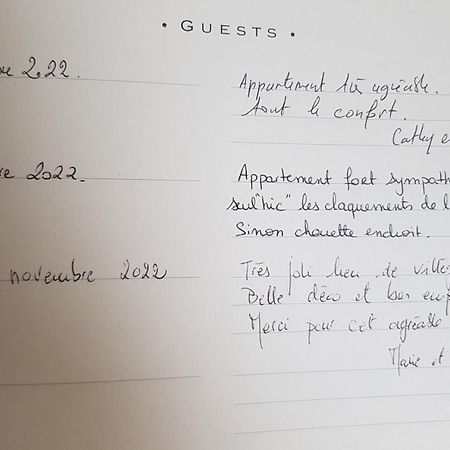 • GUESTS •
re 2022.
Appartement très agréable.
tout le confort.
Cathy e
re 2022.
Appartement fort sympath
seul "hic" les claquements de l
Sinon chouette endroit.
novembre 2022
Très joli lieu de villé
Belle déco et bon emp
Merci pour cet agréable
Marie et